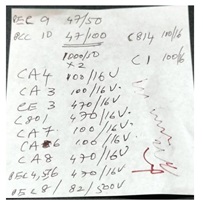 REC 9 47/50
RCC 10 47/100 C814 100/16
1000/10 C1 100/6
x 2
CA4 100/16V
CA 3 100/16V
CE 3 470/16V
C801 470/16V
CA7 100/16V.
CA6 100/16V.
CA8 470/16V
REC 4,5,6 470/16V
REC 8/ 82/500V